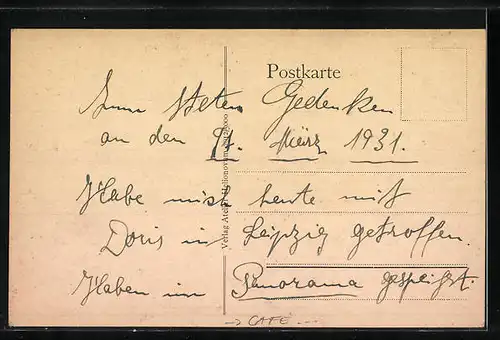 Postkarte
Zum steten Gedenken
an den März 1931.
Habe mich heute mit
Doris in Leipzig getroffen.
Haben im Panorama gespeist.
→ CAFE
Verlag Atelier